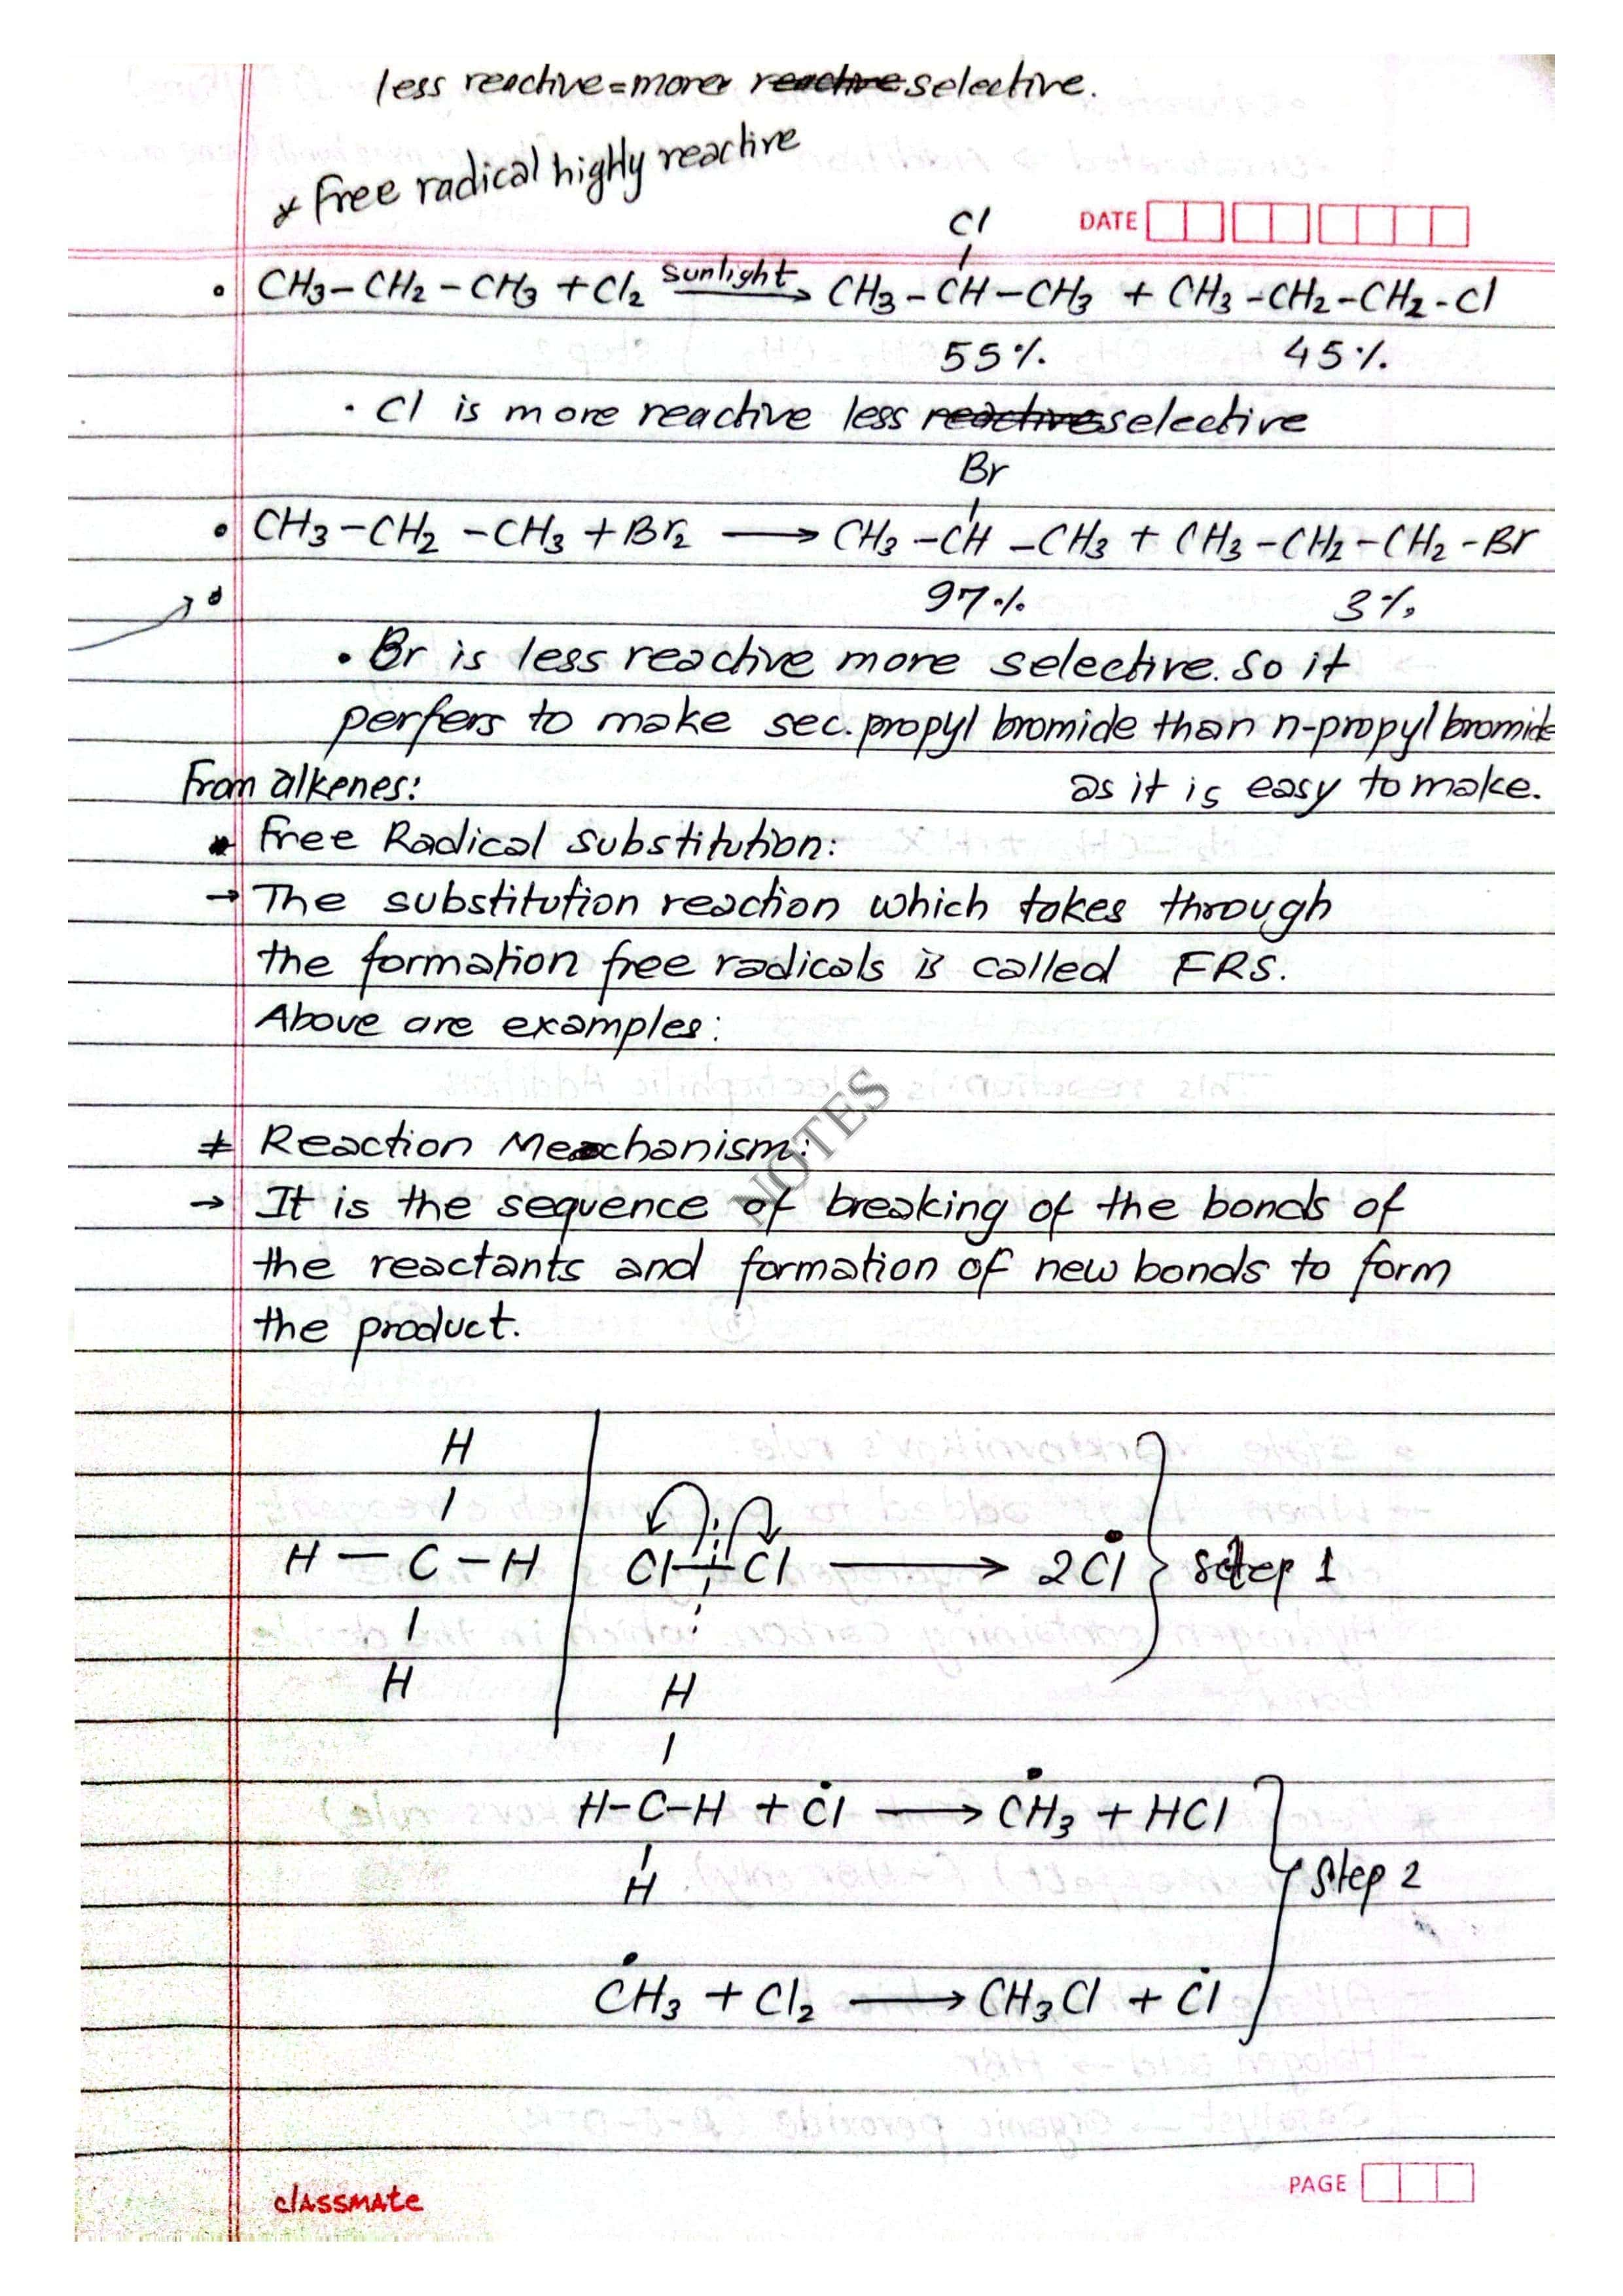 less reactive = more reactive selective.
* Free radical highly reactive
DATE
Cl
• CH₃–CH₂–CH₃ + Cl₂ sunlight→ CH₃–CH–CH₃ + CH₃–CH₂–CH₂–Cl
55% 45%
• Cl is more reactive less reactive selective
Br
• CH₃–CH₂–CH₃ + Br₂ → CH₃–CH–CH₃ + CH₃–CH₂–CH₂–Br
97% 3%
• Br is less reactive more selective. So it
perfers to make sec. propyl bromide than n-propyl bromide
as it is easy to make.
From alkenes:
* Free Radical Substitution:
→ The substitution reaction which takes through
the formation free radicals is called FRS.
Above are examples:
NOTES
* Reaction Mechanism:
→ It is the sequence of breaking of the bonds of
the reactants and formation of new bonds to form
the product.
H
H – C – H
H
Cl–Cl → 2Ċl } Step 1
H
H–C–H + Ċl → ĊH₃ + HCl
H
} Step 2
ĊH₃ + Cl₂ → CH₃Cl + Ċl
classmate
PAGE